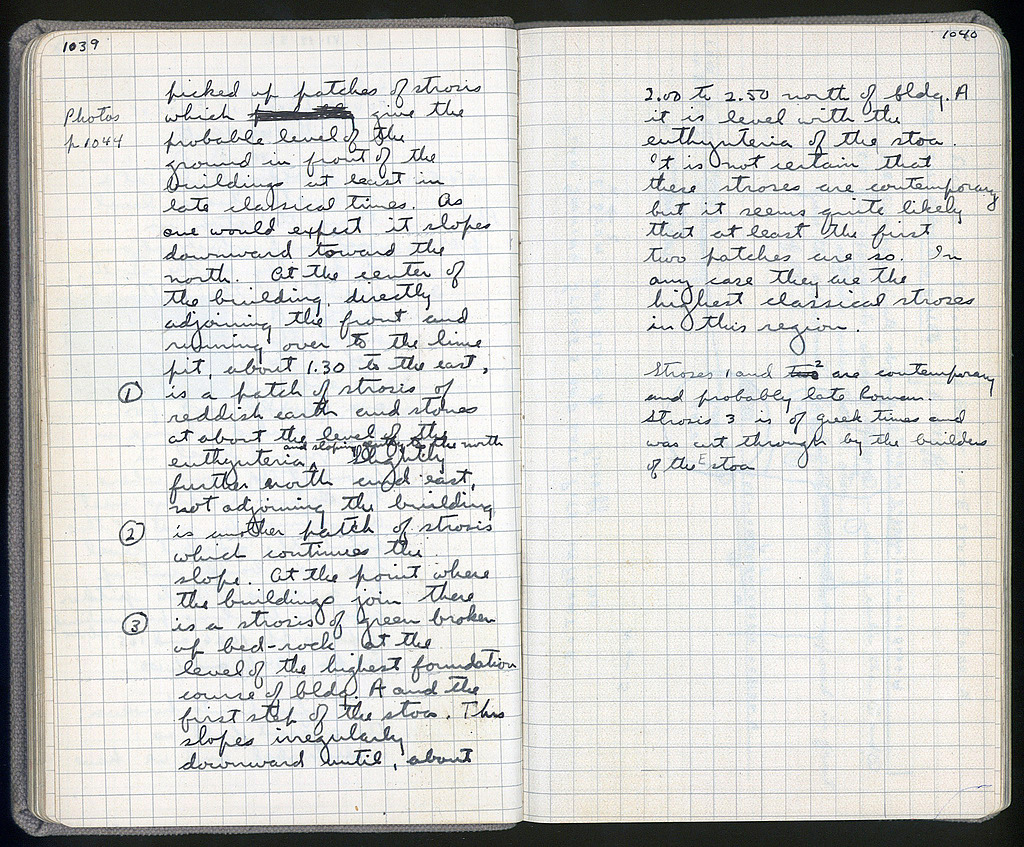 1039
Photos
p 1044
picked up patches of strosis
which give the
probable level of the
ground in front of the
buildings at least in
late classical times. As
one would expect it slopes
downward toward the
north. At the center of
the building, directly
adjoining the front and
running over to the lime
pit, about 1.30 to the east,
① is a patch of strosis of
reddish earth and stones
at about the level of the
and sloping gently to the north
euthynteria. Slightly
further north and east,
not adjoining the building
② is another patch of strosis
which continues the
slope. At the point where
the buildings join there
③ is a strosis of green broken
up bed-rock at the
level of the highest foundation
course of bldg. A and the
first step of the stoa. This
slopes irregularly
downward until, about
1040
2.00 to 2.50 north of bldg. A
it is level with the
euthynteria of the stoa.
It is not certain that
these stroses are contemporary
but it seems quite likely
that at least the first
two patches are so. In
any case they are the
highest classical stroses
in this region.
Stroses 1 and 2 are contemporary
and probably late Roman.
Strosis 3 is of Greek times and
was cut through by the builders
of the E stoa